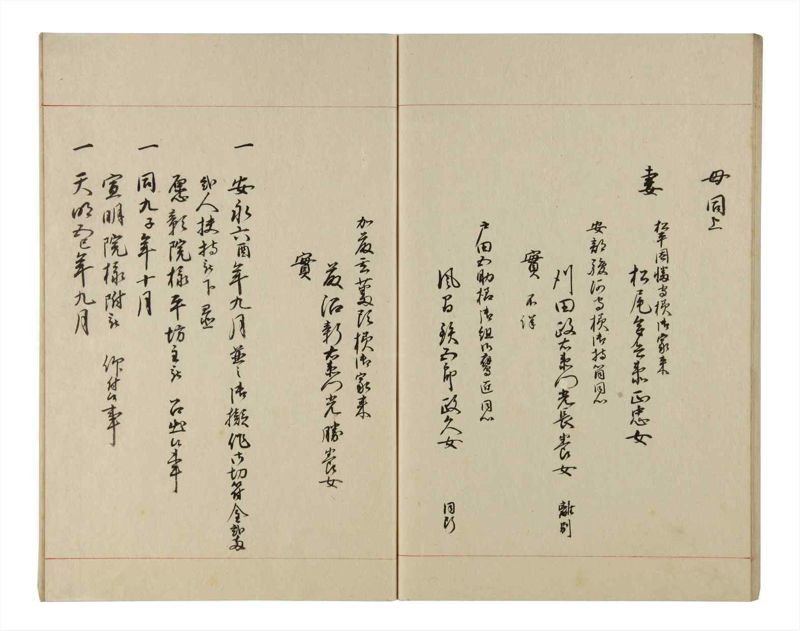 母同上
妻 松平因幡守様御家来
松尾多兵衛正忠女
安部駿河守様御持筒同心
刈田政右衛門光長養女 離別
實 不詳
戸田五助様御組御鷹匠同心
風間鉄五郎政久女 同断
加藤 様御家来
藤沼新右衛門光勝養女
實
一 安永六酉年九月 御擬作御切符金
人扶持被下置
愿彰院様平坊主被 召出候事
一 同九子年十月
宣明院様附被 仰付候事
一 天明五巳年九月